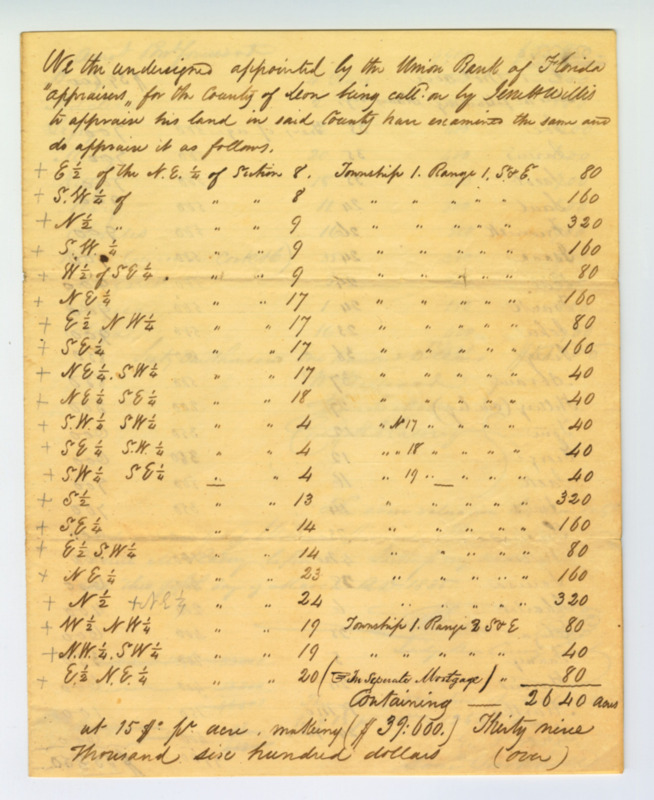 We the undersigned appointed by the Union Bank of Florida
"appraisers" for the County of Leon being call on by Willis
to appraise his land in said County have examined the same and
do appraise it as follows.
+ E ½ of the N.E. ¼ of Section 8. Township 1. Range 1. S & E. 80
+ S.W. ¼ of " 8 " " " " " 160
+ N ½ " " " 9 " " " " " 320
+ S.W. ¼ " " 9 " " " " " 160
+ W ½ of S E ¼ . " " 9 " " + " " 80
+ N E ¼ " " 17 " " " " " 160
+ E ½ N W ¼ " " 17 " " " " " 80
+ S E ¼ " " 17 " " " " " 160
+ N E ¼. S W ¼ " " 17 " " " " " 40
+ N E ¼ S E ¼ " " 18 " " " " " 40
+ S.W. ¼ S W ¼ " " 4 " N 17 " " " 40
+ S E ¼ S.W. ¼ " " 4 " " 18 " " " 40
+ S W ¼ S E ¼ " " 4 " 19 " " 40
+ S ½ " " 13 " " " " " 320
+ S.E ¼ " " 14 " " " " " 160
+ E ½ S.W ¼ " " 14 " " " " " 80
+ N E ¼ " " 23 " " " " " 160
+ N ½ + N E ¼ " " 24 " " " " " 320
+ W ½ N W ¼ " " 19 Township 1. Range 2 S & E 80
+ N.W. ¼. S W ¼ " " 19 " " " " " 40
+ E. ½ N.E. ¼ " " 20 (☞ In Seperate Mortgage) " 80
Containing — 2640 acres
at 15 $ pr acre. making ($ 39:600.) Thirty nine
thousand six hundred dollars (over)